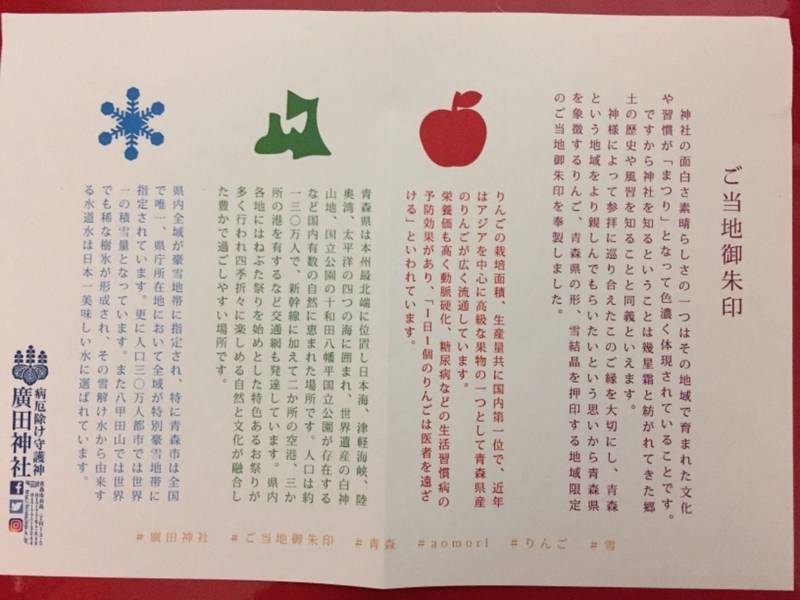 ご当地御朱印
神社の面白さ素晴らしさの一つはその地域で育まれた文化
や習慣が「まつり」となって色濃く体現されていることです。
ですから神社を知るということは幾星霜と紡がれてきた郷
土の歴史や風習を知ることと同義といえます。
神様によって参拝に巡り合えたこのご縁を大切にし、青森
という地域をより親しんでもらいたいという思いから青森県
を象徴するりんご、青森県の形、雪結晶を押印する地域限定
のご当地御朱印を奉製しました。
りんごの栽培面積、生産量共に国内第一位で、近年
はアジアを中心に高級な果物の一つとして青森県産
のりんごが広く流通しています。
栄養価も高く動脈硬化、糖尿病などの生活習慣病の
予防効果があり、「1日1個のりんごは医者を遠ざ
ける」といわれています。
青森県は本州最北端に位置し日本海、津軽海峡、陸
奥湾、太平洋の四つの海に囲まれ、世界遺産の白神
山地、国立公園の十和田八幡平国立公園が存在する
など国内有数の自然に恵まれた場所です。人口は約
一三〇万人で、新幹線に加えて二か所の空港、三か
所の港を有するなど交通網も発達しています。県内
各地にはねぶた祭りを始めとした特色あるお祭りが
多く行われ四季折々に楽しめる自然と文化が融合し
た豊かで過ごしやすい場所です。
県内全域が豪雪地帯に指定され、特に青森市は全国
で唯一、県庁所在地において全域が特別豪雪地帯に
指定されています。更に人口三〇万人都市では世界
一の積雪量となっています。また八甲田山では世界
でも稀な樹氷が形成され、その雪解け水から由来す
る水道水は日本一美味しい水に選ばれています。
病厄除け守護神
廣田神社
#廣田神社 #ご当地御朱印 #青森 #aomori #りんご #雪